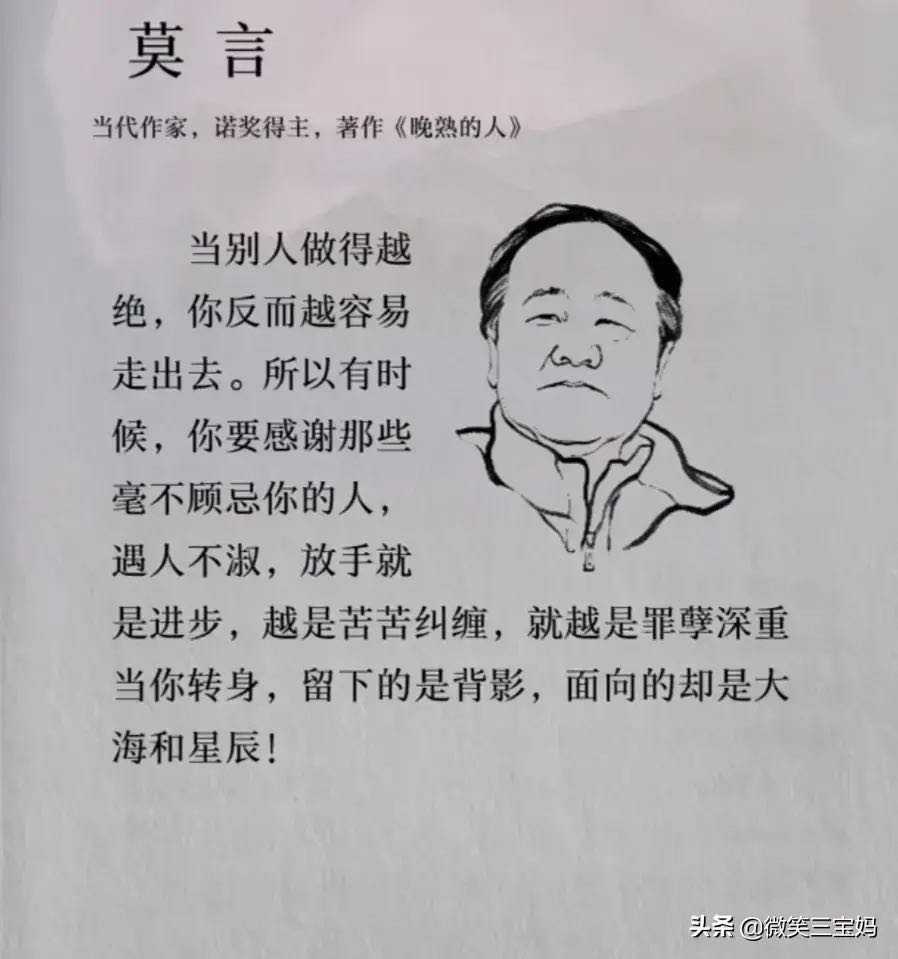 莫言
当代作家，诺奖得主，著作《晚熟的人》
当别人做得越
绝，你反而越容易
走出去。所以有时
候，你要感谢那些
毫不顾忌你的人，
遇人不淑，放手就
是进步，越是苦苦纠缠，就越是罪孽深重
当你转身，留下的是背影，面向的却是大
海和星辰！
头条 @微笑三宝妈